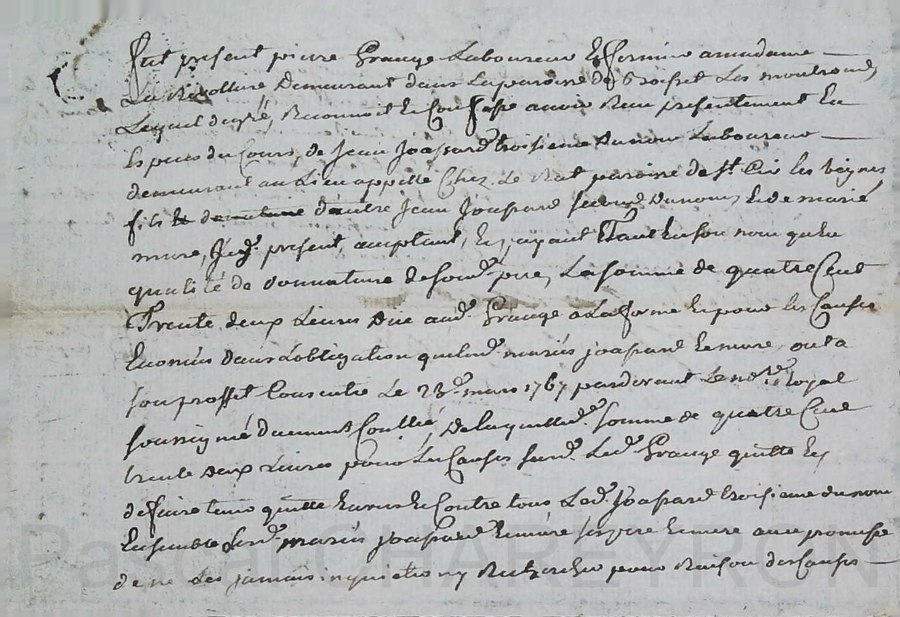 fut present pierre Grange Laboureur Et fermier a madame
La Rivolliere Demeurant dans La paroisse de Groisset Les montrond,
Lequel de gré, Reconnoit Et Confesse avoir Receu presentement En
Especes du Cours, de Jean Joassard troisieme du nom Laboureur
demeurant au Lieu appellé Chez Le Rat paroisse de St Cir les Veignes
fils d'autre Jean Joassard second du nom, Et de marie
mure, present, acceptant, Et, ayant tant En son nom qu'En
qualité de donnataire de sond. pere, La somme de quatre Cent
Trente deux Livres Due aud. Grange a La forme Et pour les Causes
Enoncées dans L'obligation que Les d. mariés joassard Et mure, ont a
son proffit Consentie Le 23e. mars 1767 pardevant Le nore. Royal
soussigné duement Conllée, De laquelle d. somme de quatre Cent
trente deux Livres pour Les Causes susd. Led. Grange quitte Et,
de faire tenir quitte Envers Et Contre tous, Led. Joassard troisieme du nom
Ensemble Lesd. mariés joassard Et mure ses pere Et mere avec promesse
de ne Les jamais inquieter ny Rechercher pour Raison des Causes
Pascal CHAREYRON